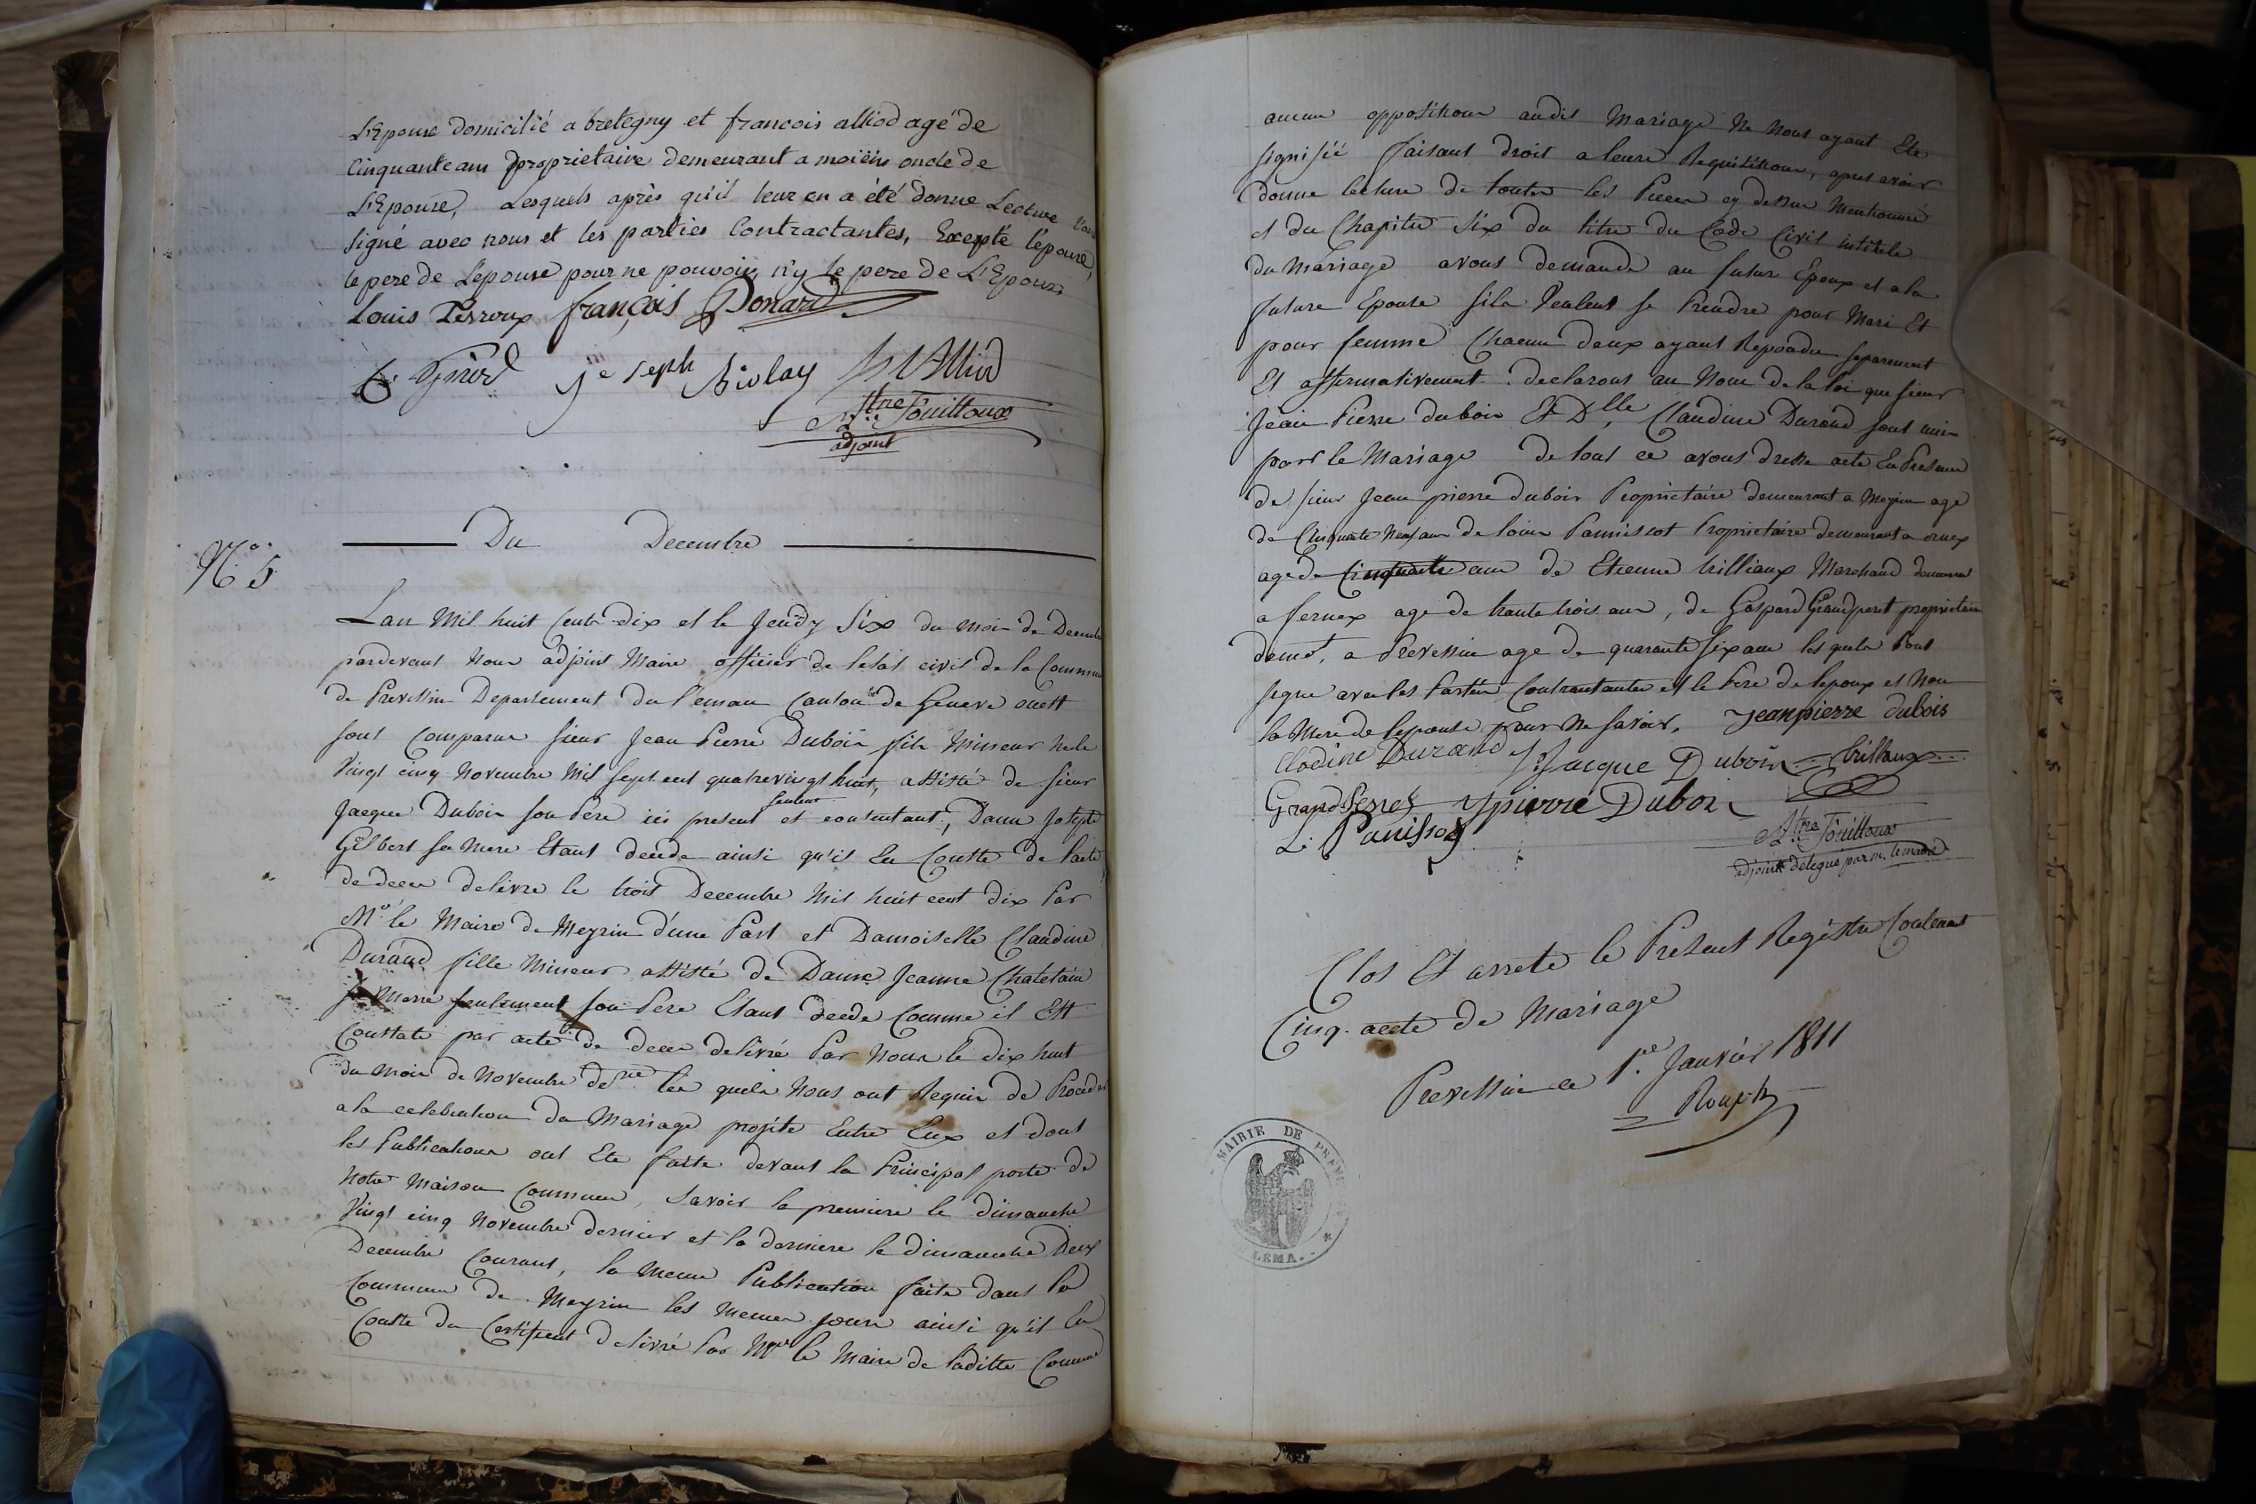 L'Epouse domicilié a bretegny et francois alliod agé de
Cinquante ans proprietaire demeurant a moëns oncle de
L'Epouse, Lesquels après qu'il leur en a été donné Lecture
signé avec nous et les parties Contractantes, Excepté l'épouse,
le pere de l'epouse pour ne pouvoir, n'y le pere de L'Epoux
Louis Perroux françois Donard
Girod Joseph Biolay Alliod
Touilloux
adjoint
Du Decembre
N.° 5
Lan Mil huit Cents dix et le Jeudy Six du mois de Decembre
pardevant Nous adjoint Maire officier de letat civil de la Commune
de Prevessin Departement du Leman Canton de Geneve ouest
sont Comparus sieur Jean Pierre Dubois fils Mineur Ne le
Vingt cinq Novembre Mil Sept cent quatrevingt huit, assisté de Sieur
Jacque Dubois son Pere ici present et contentant, Dame Josepte
Gilbert sa Mere Etant decede ainsi qu'il En Conste de l'acte
de deces delivre le trois Decembre Mil huit cent dix Par
Mr. le Maire de Meyrin d'une Part et Damoiselle Claudine
Durand fille Mineur assisté de Dame Jeanne Chatelain
sa Merre seulement son Pere Etant Decede Comme il Est
Constate par acte de deces delivré Par Nous le dix huit
du Mois de Novembre dernier les quels Nous ont Requis de Proceder
a la celebration du Mariage projete Entre Eux et dont
les Publications ont Ete faite devant la Principal porte de
Notre Maison Commune, Savoir la premiere le dimanche
Vingt cinq Novembre dernier et la derniere le dimanche Deux
Decembre Courant, la meme Publication faite dans la
Commune de Meyrin les memes jours ainsi qu'il En
Conste du Certificat delivré Par Mr le Maire de laditte Commune
aucune opposition audit Mariage Ne Nous ayant Ete
signifiée faisant droit a leure Requisition, apres avoir
donne lecture de toutes les Pieces cy dessus Mentionné
et du Chapitre Six du titre du Code Civil intitule
du Mariage avons demande au futur Epoux et a la
future Epouse sils Veulent se Prendre pour Mari Et
pour femme Chacun deux ayant Repondu separement
Et affirmativement. declarons au Nom de la loi que sieur
Jean Pierre dubois Et Dlle, Claudine Durand sont unis
par le Mariage De tout ce avons dresse acte En Presence
de sieur Jean pierre dubois Proprietaire demeurant a Meyrin age
de Cinquante Neuf ans de louis Pannissot Proprietaire demeurant a ornex
age de Cinquante ans de Etienne trilliaux Marchand demeurant
a fernex age de trante trois ans, de Gaspard Grandperret proprietaire
demt. a Prevessin age de quarante six ans les quels Sont
signe avec les Parties Contractantes et le Pere de lepoux et Non
la Mere de lepouse pour Ne savoir. Jeanpierre dubois
Clodine Durand Jacque Dubois Trillaux
Grand Perret Jpierre Dubois
L. Panissod
Touilloux
adjoint délégué par m. le maire
Clos Et arrete le Present Registre Contenant
Cinq. acte de Mariage
Prevessin ce 1.er Janvier 1811
Rouph
MAIRIE DE PREVE
LEMA.